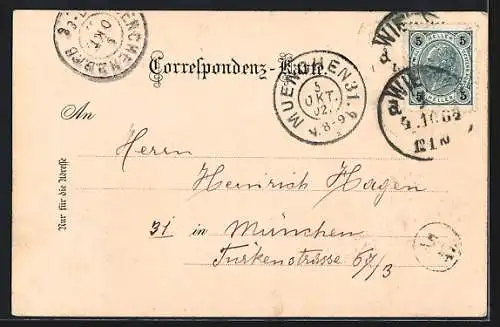 Correspondenz-Karte.
MUENCHEN 31.b
5
OKT.
02.
V. 8-9
WIEN
5 HELLER 5
WIEN
4.10.02
An
Nur für die Adresse
Herrn
Heinrich Hagen
31 in München
Türkenstrasse 67/3